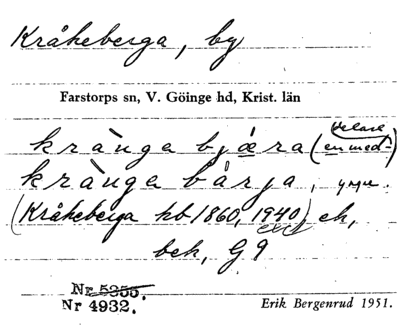 Kråkeberga, by
Farstorps sn, V. Göinge hd, Krist. län
kràŋga bjǽra (en med-
kràŋga bárja, yngre.
(Kråkeberga hb 1860, 1940) ek,
bek, G 9
Nr 5355.
Nr 4932. Erik Bergenrud 1951.